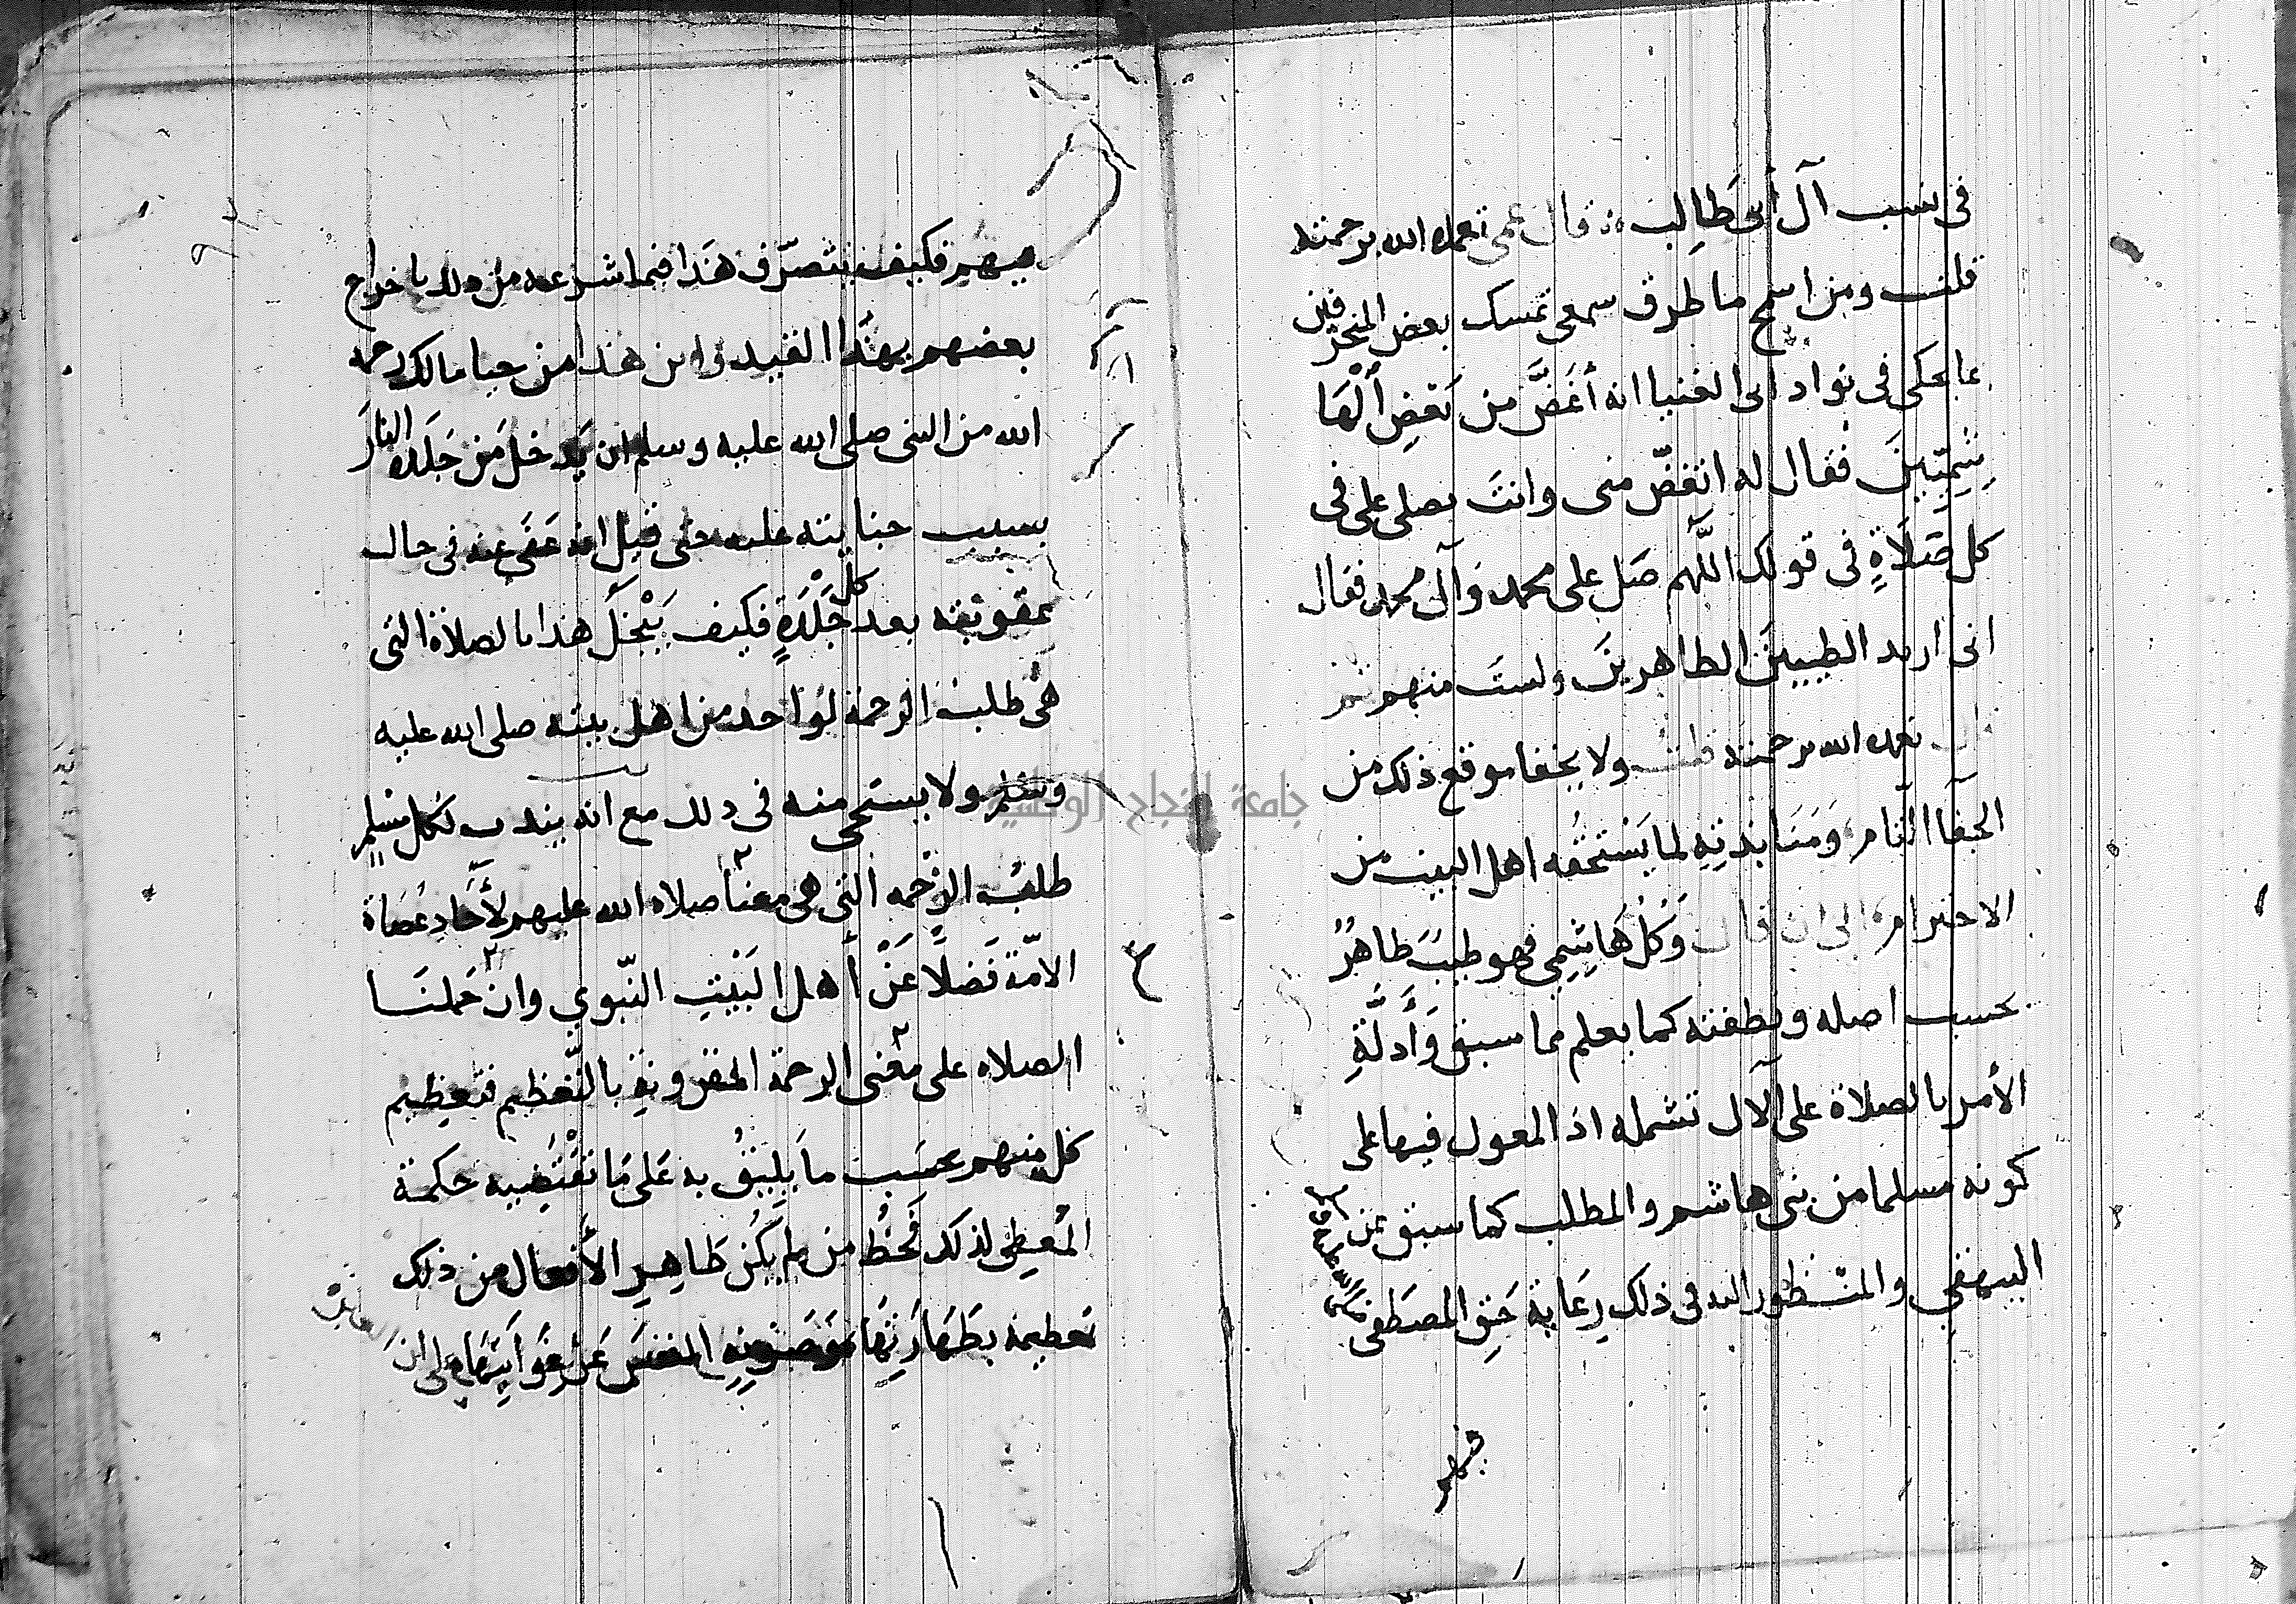 في نسب آل أبي طَالِب قال عمي تغمده الله برحمته
قلت ومن اسمج ما طرق سمعي تمسك بعض المنحرفين
بما يحكى في نوادر ابي العنبا انه أغَضَّ من بَعضِ الْهَا
شِمِيِّينَ فقال له اتغضّ مني وانتَ تصلي علي في
كل صَلَاةٍ في قولك اللَّهم صَل على محمد وَآل محمد فقال
اني اريد الطيبينَ الطاهرينَ ولستَ منهم ثم
قال تغمده الله برحمته قلت ولا يخفا موقع ذلك من
الجفَآ التام وَمَنَابذتِهِ لما يَسْتحقُه اهل البيت من
الاحترام الى ان قال وَكُلُّ هَاشِمِي فهو طيبٌ طاهرٌ
بحسب اصله ونطفته كما يعلم مما سبق وَأَدلَّةِ
الأمر بالصلاة على الآل تشمله اذ المعول فيها على
كونه مسلما من بني هاشم والمطلب كما سبق عن
البيهقي والمنظور اليه في ذلك رِعَايَة حَقِ المصطَفى
صلى الله عليه وسلم
فيهم
فيهم فكيف يتصرّف هَذا فيما شرعه من ذلك باخراج
بعضهم بهَذا القيد واين هذا من حيا مالك رحمه
الله من النبي صلى الله عليه وسلم ان يَدخل مَن جَلَده النارَ
بسبب جنايته عليه حتى قيل انه عَفَى عنه في حال
عقوبته بعد كل جَلْدَةٍ فكيف يَبْخَلُ هذا بالصلاة التي
هي طلب الرحمة لواحد من اهل بيته صلى الله عليه
وسلم ولا يستحي منه في ذلك مع انه يندب لكل مسْلمٍ
طلبُ الرَّحْمه التي هي معنا صلاه الله عليهم لأَحَادِ عُصَاة
الامّة فَضلًا عَنْ أهل البَيْتِ النّبوي وان حَملنَا
الصلاه على مَعْنى الرحمة المقرونةِ بالتَّعْظيم فتعظيم
كل منهم بحسَب ما يَليقُ به عَلى مَا تقْتَضِيه حكمة
المُعطِي لذلك فَحَظ من لم يكُن طَاهِرِ الأَفعال من ذلك
تعظيمه بطَهَارَتِهَا وَصَوْنِهِ النفس عَن غَوَايَتِهَا على ان